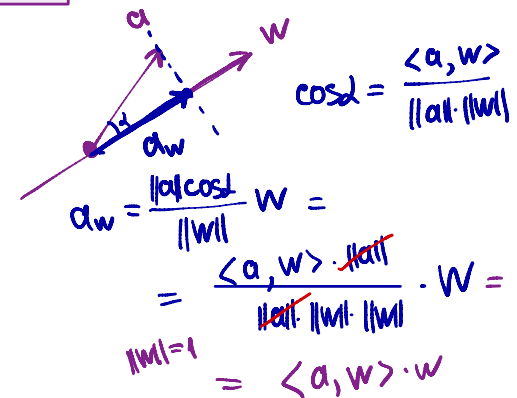 a
w
cosα = <a, w> / ||a||·||w||
α
a_w
a_w = ||a||cosα / ||w|| w =
= <a, w>·||a|| / ||a||·||w||·||w|| · w =
||w||=1
= <a, w>·w